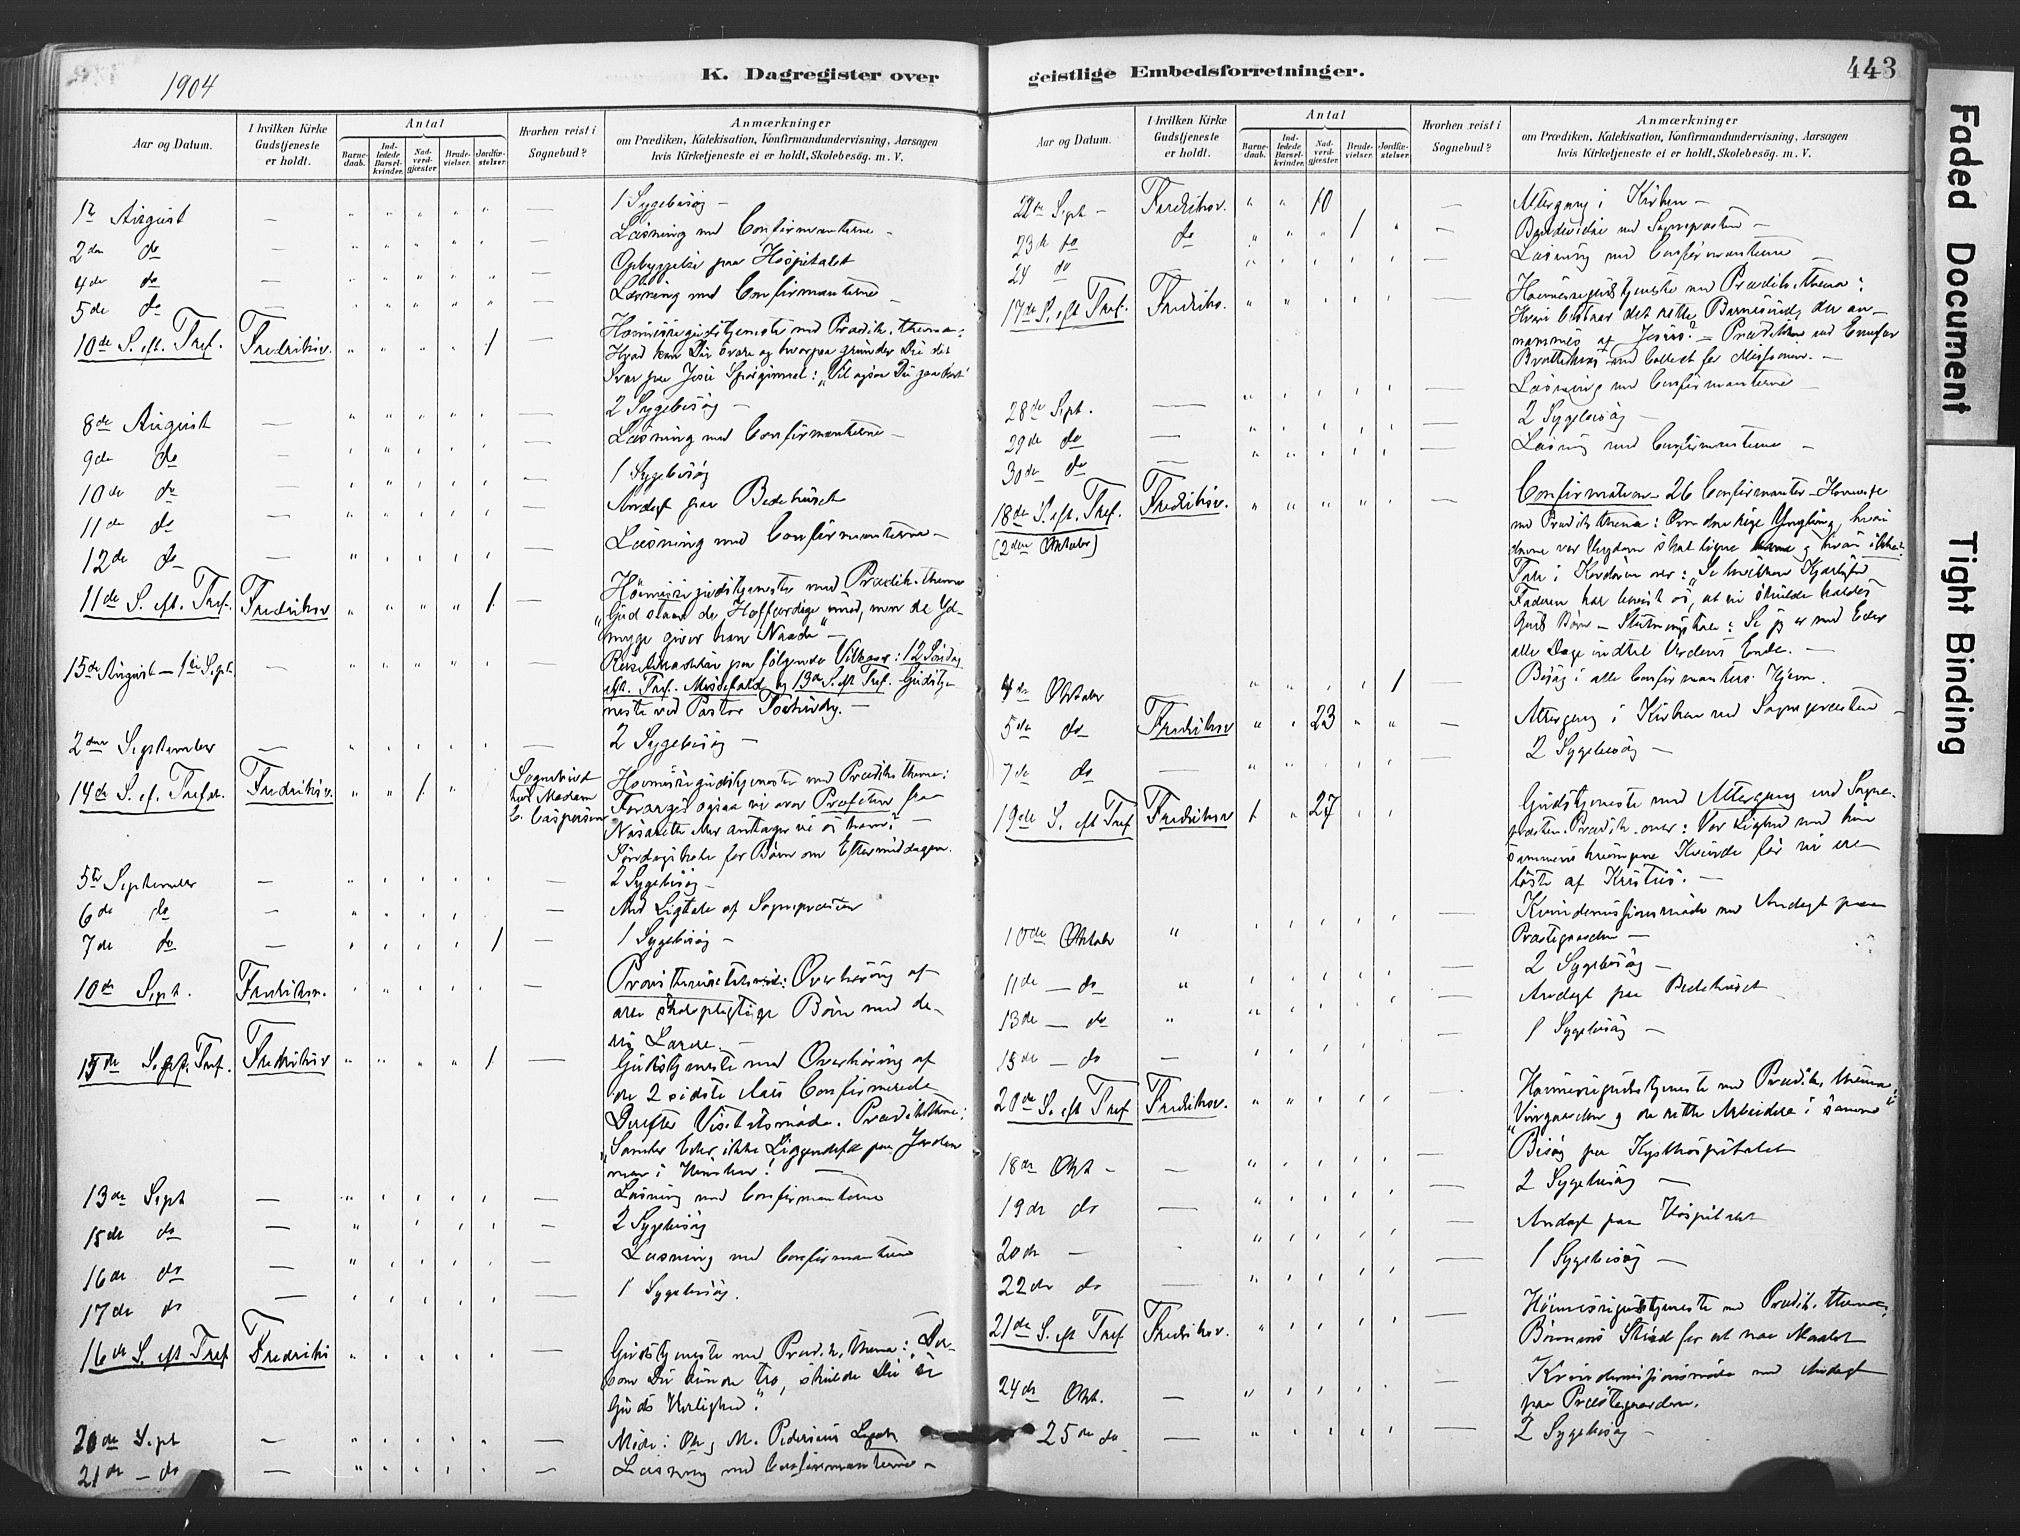 1904
K. Dagregister over
Aar og Datum.
I hvilken Kirke Gudstjeneste er holdt.
Antal
Barnedaab.
Indledede Barselkvinder.
Nadverdgjæster
Brudevielser.
Jordfæstelser.
Hvorhen reist i Sognebud?
Anmærkninger
om Prædiken, Katekisation, Konfirmandundervisning, Aarsagen
hvis Kirketjeneste ei er holdt, Skolebesög. m. V.
August — 1 Sygebesög —
2den do — Læsning med Confirmanterne —
4de do — Opbyggelse paa Hospitalet
5de do — Læsning med Confirmanterne —
10de S. eft. Tref. Fredriksv. 1 Höimessegudstjeneste med Prædik. thema:
Hvad kan Du svare og hvorpaa grunder Du dit
Svar paa Jesu Spörgsmaal: "Vil ogsaa Du gaa bort
8de August — 2 Sygebesög —
9de do — Læsning med Confirmanterne —
10de do — 1 Sygebesög
11de do — Andagt paa Bedehuset
12de do — Læsning med Confirmanterne —
11de S. eft. Tref. Fredriksv 1 — Höimessegudstjeneste med Prædik. thema
"Gud staar de Hoffærdige imod, men de Yd-
myge giver han Naade" —
15de August — 1ste Sept. — paa fölgende Vilkaar: 12 Söndag
eft. Tref. Messefald og 13de S. eft Tref. Gudstje-
neste ved Pastor
2den September — 2 Sygebesög —
14de S. ef. Trefol. Fredriksv. 1 Sognebud hos Madam C. Caspersen Höimessegudstjeneste med Prædiks thema:
Forarges ogsaa vi over Profeten fra
Nasaret eller antager vi os ham? —
Söndagsskole for Börn om Eftermiddagen.
5te September — 2 Sygebesög —
6de do — Med Ligtale af Sognepræsten
7de do — 1 — 1 Sygebesög —
10de Sept. Fredriksv. Overhöring af
skolepligtige Börn med de-
res Lærere. —
15de S. eft. Tref. Fredriksv 1 — Gudstjeneste med Overhöring af
de 2 sidste Aars Confirmerede
Derefter Visitatsmöde. Prædikthema:
"Samler Eder ikke Liggendefæ paa Jorden
men i Himlen! —
13de Sept — Læsning med Confirmanterne
15de do — 2 Sygebesög
16de do — Læsning med Confirmanterne
17de do — 1 Sygebesög.
16de S. eft Tref Fredriksv Gudstjeneste med Prædik. thema: "Der-
som Du kunde tro, skulde Du se
Guds Herlighed."
20de Sept — Möde: O. M. Pedersens Legat
21de — do — Læsning med Confirmanterne —
geistlige Embedsforretninger.
443
Aar og Datum.
I hvilken Kirke Gudstjeneste er holdt.
Antal
Barnedaab.
Indledede Barselkvinder.
Nadverdgjæster.
Brudevielser.
Jordfæstelser.
Hvorhen reist i Sognebud?
Anmærkninger
om Prædiken, Katekisation, Konfirmandundervisning, Aarsagen
hvis Kirketjeneste ei er holdt, Skolebesög. m. V.
22de Sept — Fredriksv. 10 — Altergang i Kirken —
23de do do 1 — Brudevielse ved Sognepræsten —
24 do — Læsning med Confirmanterne —
17de S. eft Tref. Fredriksv. — Höimessegudstjeneste med Prædik. thema:
Hvori bestaar det rette Barnesind, der an-
nammes af Jesus? — Prædiken ved Emisær
Brattekaas med Collect for Missionen. —
28de Sept. — Læsning med Confirmanterne —
29de do — 2 Sygebesög —
30de do — Læsning med Confirmanterne —
18de S. eft. Tref. Fredriksv. — Confirmation — 26 Confirmanter — Höimesse
(2den Oktober) med Prædiks thema: Om den rige Yngling, hvori
denne vor Ungdom skal ligne og hvori ikke?
Tale i Kordören over: "Se hvilken Kjærlighed
Faderen har bevist os, at vi skulde kaldes
Guds Börn — Slutningstale: Se jeg er med Eder
alle Dage indtil Verdens Ende. —
4de Oktober 1 Besög i alle Confirmanters Hjem.
5de do Fredriksv 23 — Altergang i Kirken ved Sognepræsten —
7de do — 2 Sygebesög —
19de S. eft Tref Fredriksv 1 27 Gudstjeneste med Altergang ved Sogne-
præsten. Prædik. over: Vor Lighed med hin
sammenkrumpne Kvinde för vi ere
löste af Kristus. —
10de Oktober " — Kvindemissionsmöde med Andagt paa
Præstegaarden —
11de — do " — 2 Sygebesög —
13de — do " — Andagt paa Bedehuset
15de — do — 1 Sygebesög —
20de S. eft Tref Fredriksv. — Höimessegudstjeneste med Prædik. thema:
"Vingaarden og de rette Arbeidere i samme"
18de Okt — Besög paa Kysthospitalet
19de do — 2 Sygebesög —
20de — Andagt paa Hospitalet
22de do — 1 Sygebesög —
21de S. eft Tref. Fredriksv. — Höimessegudstjeneste med Prædik. thema:
Bönnens Strid for at naa Maalet
24de Okt. — Kvindemissionsmöde med Andagt
paa Præstegaarden.
25de do — 2 Sygebesög —
Faded Document
Tight Binding